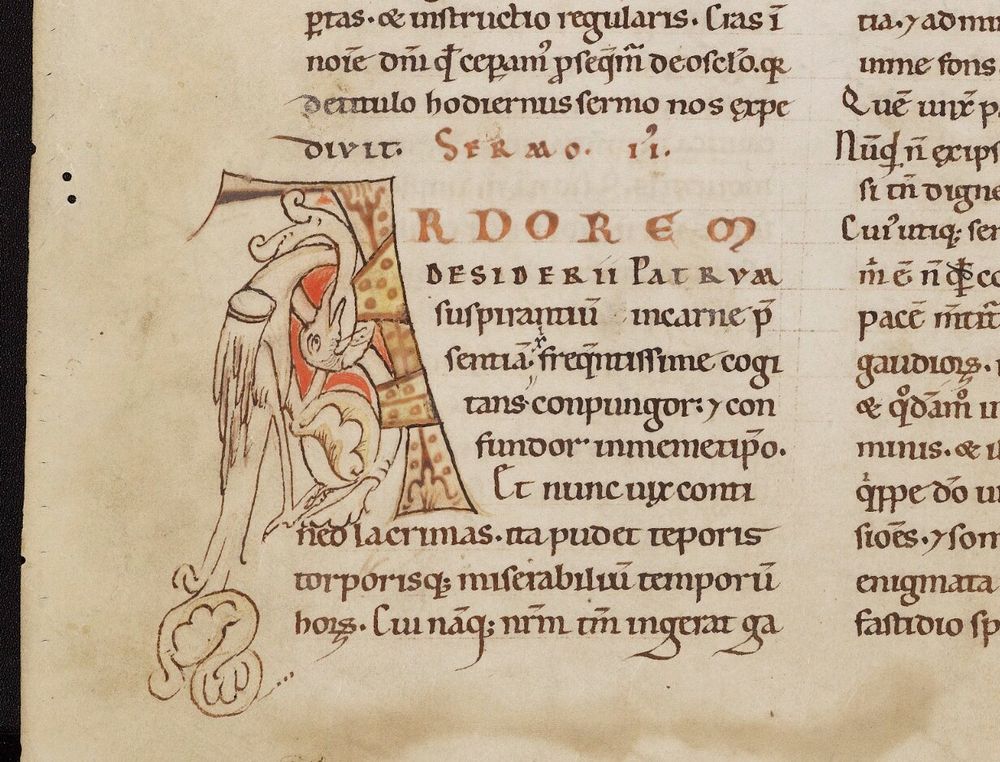 ꝑtas · ⁊ instructio regularis · Cras ī
noīe dn̄i qd̄ cepam᷒ ꝓseq̄m̄ de osclō · qꝫ
de titulo hodiernus sermo nos expe
divit. SERMO · II.
ARDOREM
DESIDERII PATRVM
suspirantiū incarne p̄
sentiā · freq̄ntissime cogi
tans conpungor · ⁊ con
fundor in memetip̄o.
Et nunc uix conti
neo lacrimas · ita pudet teporis
torporisqꝫ miserabiliū temporū
horꝝ. Cui nāqꝫ nr̄m tm̄ ingerat ga
tia · ⁊ ad
in me fons
Quē
Nūqd n̄ ex ips
si tn̄ digne
Cui᷒ utiqꝫ ser
m̄ ē n̄
pacē
gaudiorꝝ ·
⁊ qͦdāmͦ
minis · ⁊
qͥppe dō ui
sioēs · ⁊ som
enigmata
fastidio sp